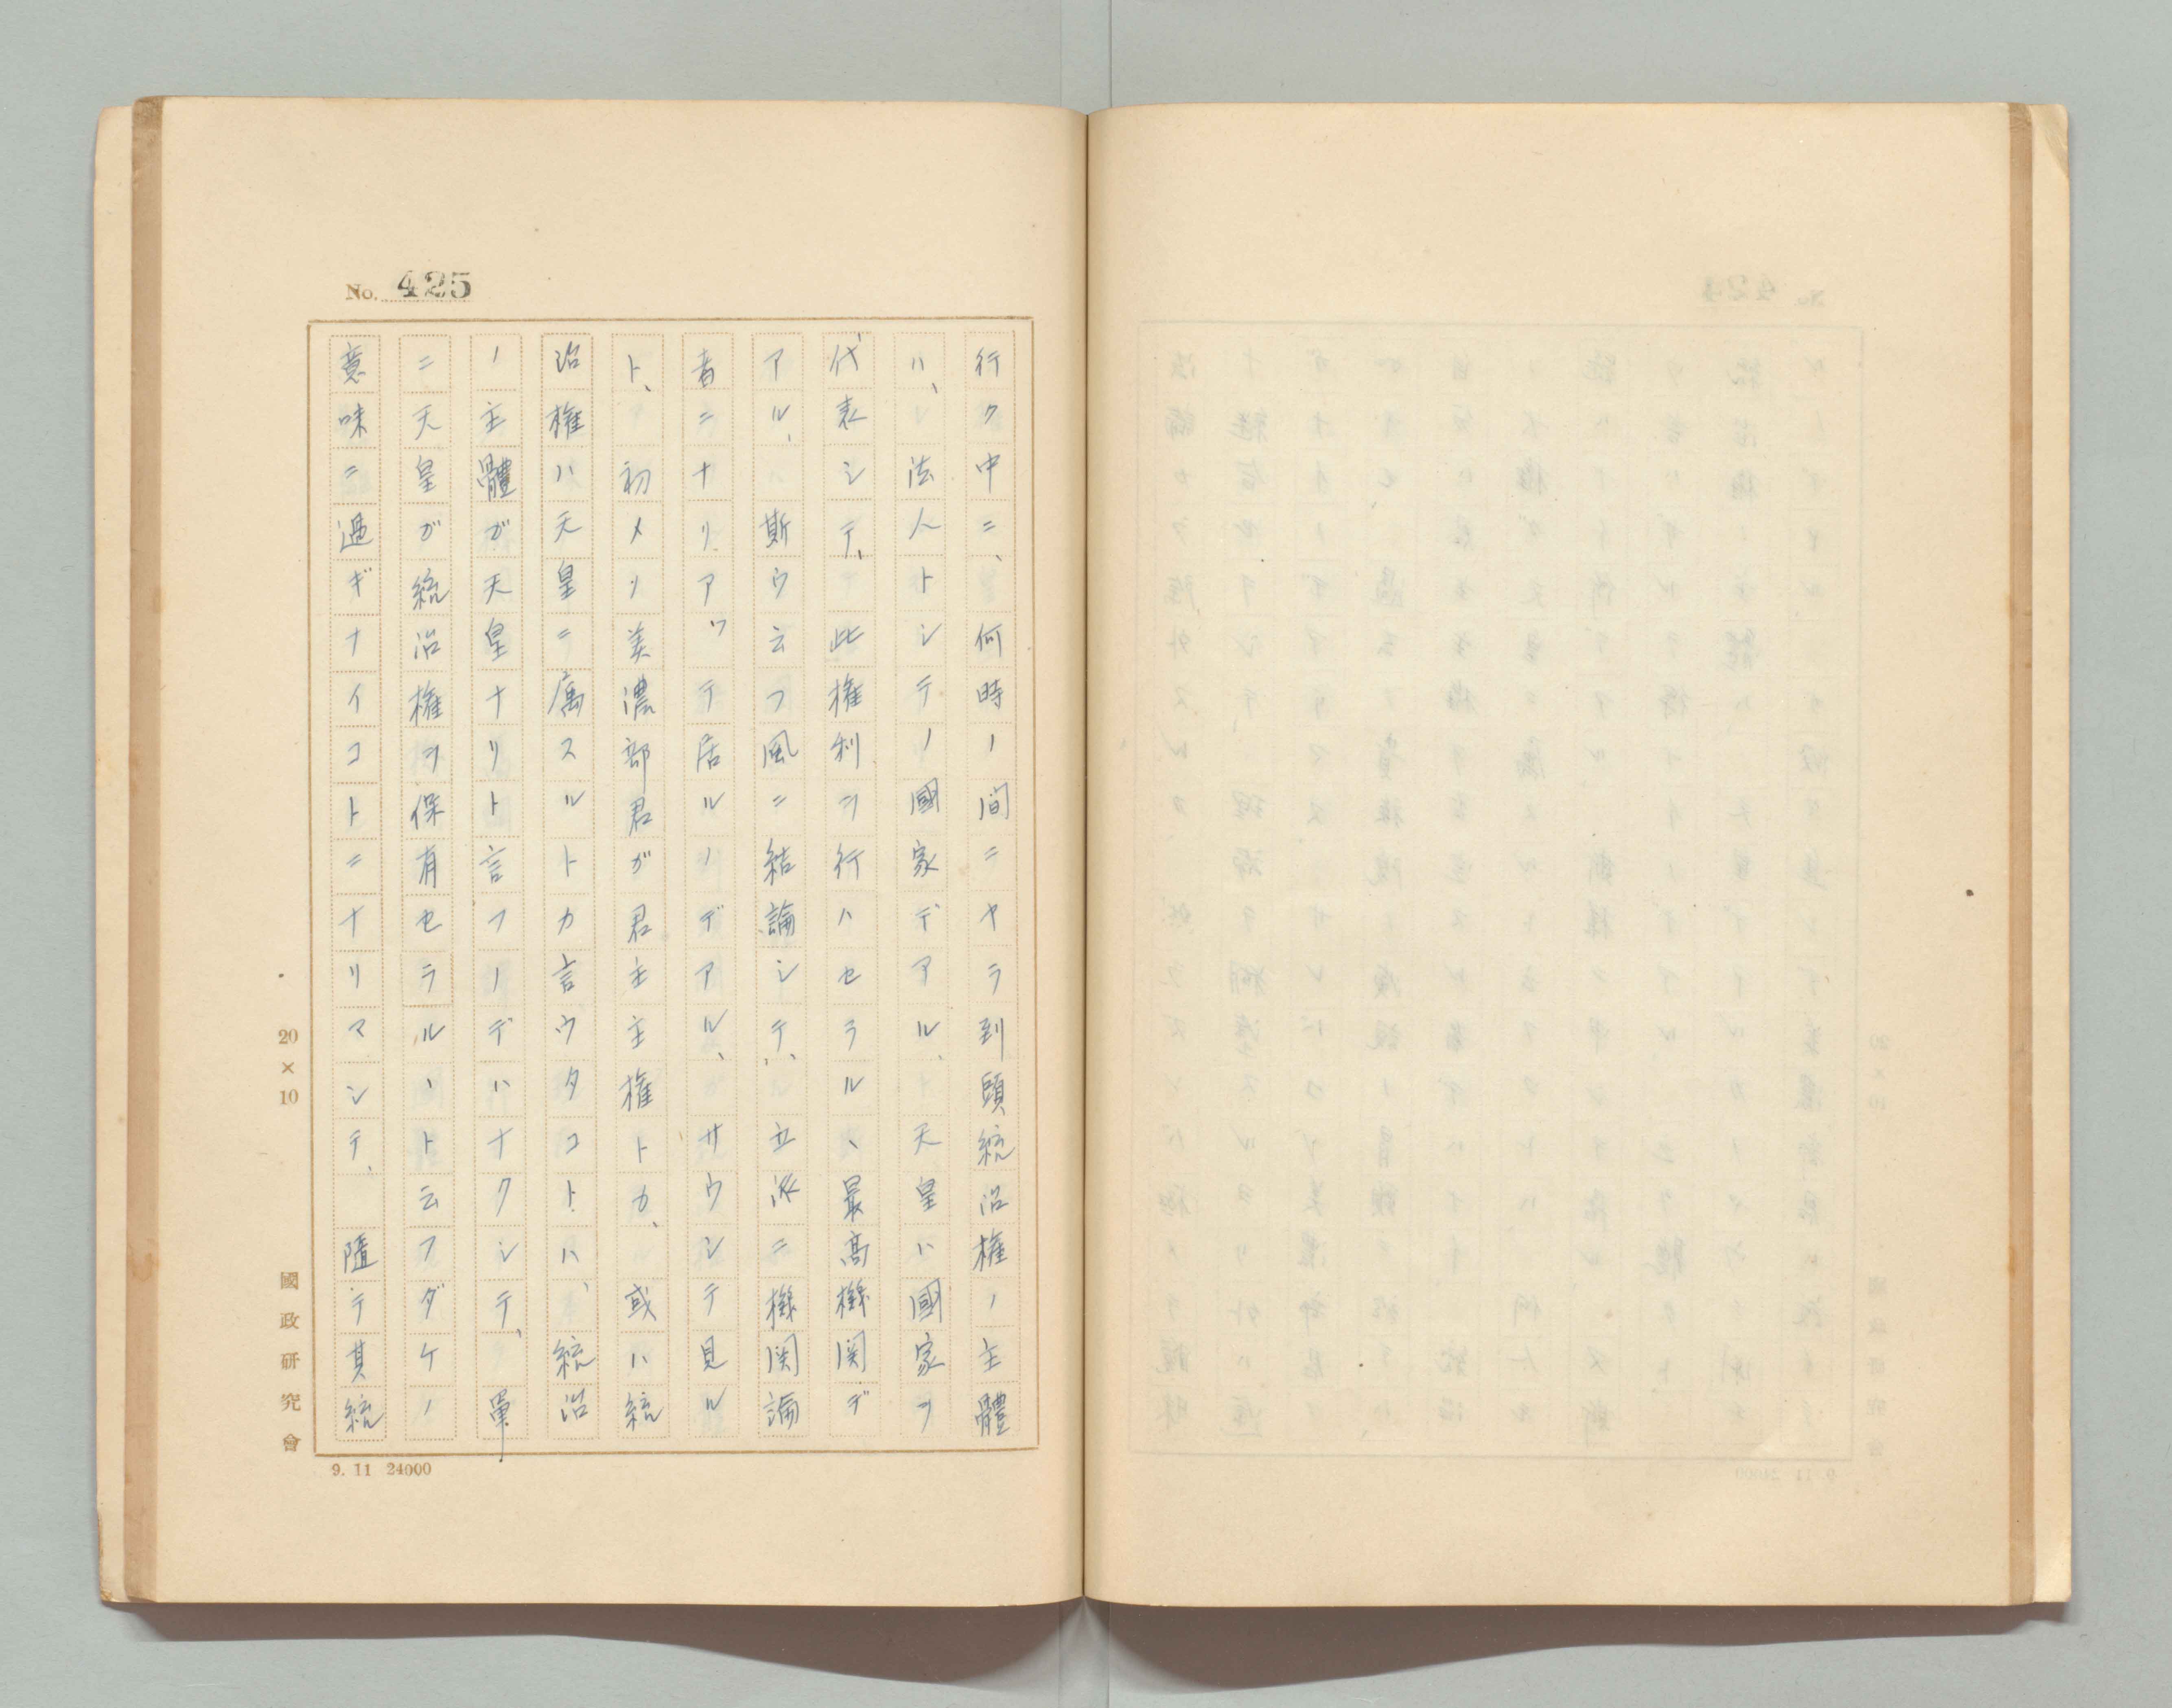 No. 425
行ク中ニ、何時ノ間ニヤラ到頭統治権ノ主體
ハ、法人トシテノ國家デアル、天皇ハ國家ヲ
代表シテ、此権利ヲ行ハセラルヽ最高機関デ
アル、斯ウ云フ風ニ結論シテ、立派ニ機関論
者ニナリアツテ居ルノデアル、サウシテ見ル
ト、初メノ美濃部君ガ君主主権トカ、或ハ統
治権ハ天皇ニ属スルトカ言ウタコトハ、統治
ノ主體ガ天皇ナリト言フノデハナクシテ、單
ニ天皇ガ統治権ヲ保有セラルヽト云フダケノ
意味ニ過ギナイコトニナリマシテ、隨テ其統
20×10
國政研究會
9. 11 24000